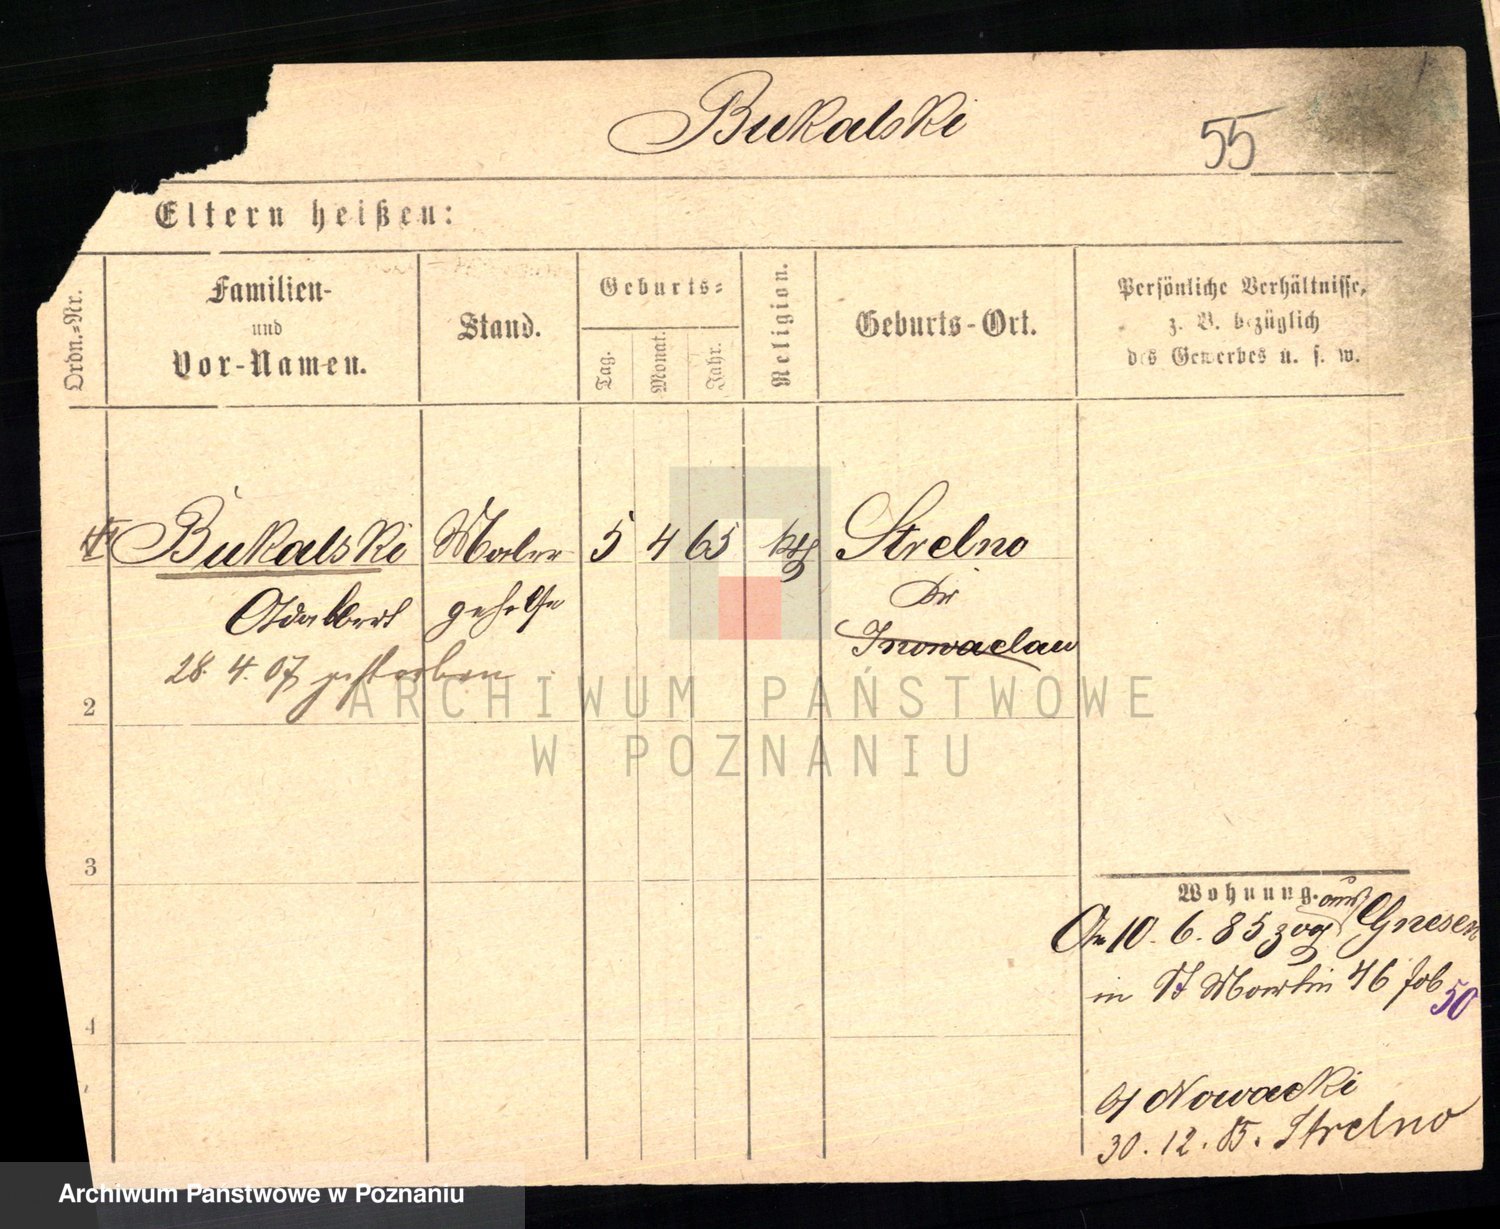 Bukalski
55
Eltern heißen:
Ordn.=Nr.
Familien-
und
Vor-Namen.
Stand.
Geburts=
Tag.
Monat.
Jahr.
Religion.
Geburts-Ort.
Persönliche Verhältnisse,
z. B. bezüglich
des Gewerbes u. s. w.
Bukalski Maler 5 4 65 kth Strelno
Adalbert gehilfe Kr
Inowraclaw
28. 4. 07 gestorben
2
3
4
Wohnung.
Am 10. 6. 85 zog aus Gnesen
in St Martin 46
50
Nowacki
30. 12. 85. Strelno
ARCHIWUM PAŃSTWOWE
W POZNANIU
Archiwum Państwowe w Poznaniu